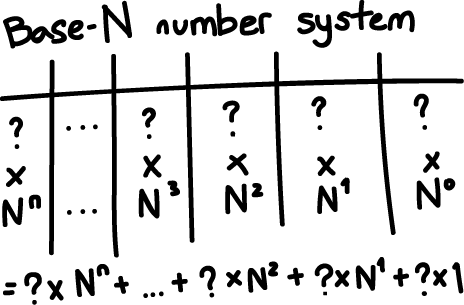 Base-N number system
? ... ? ? ? ?
x x x x x
Nⁿ ... N³ N² N¹ N⁰
=?x Nⁿ+ ... + ? xN² + ?xN¹ +?x1